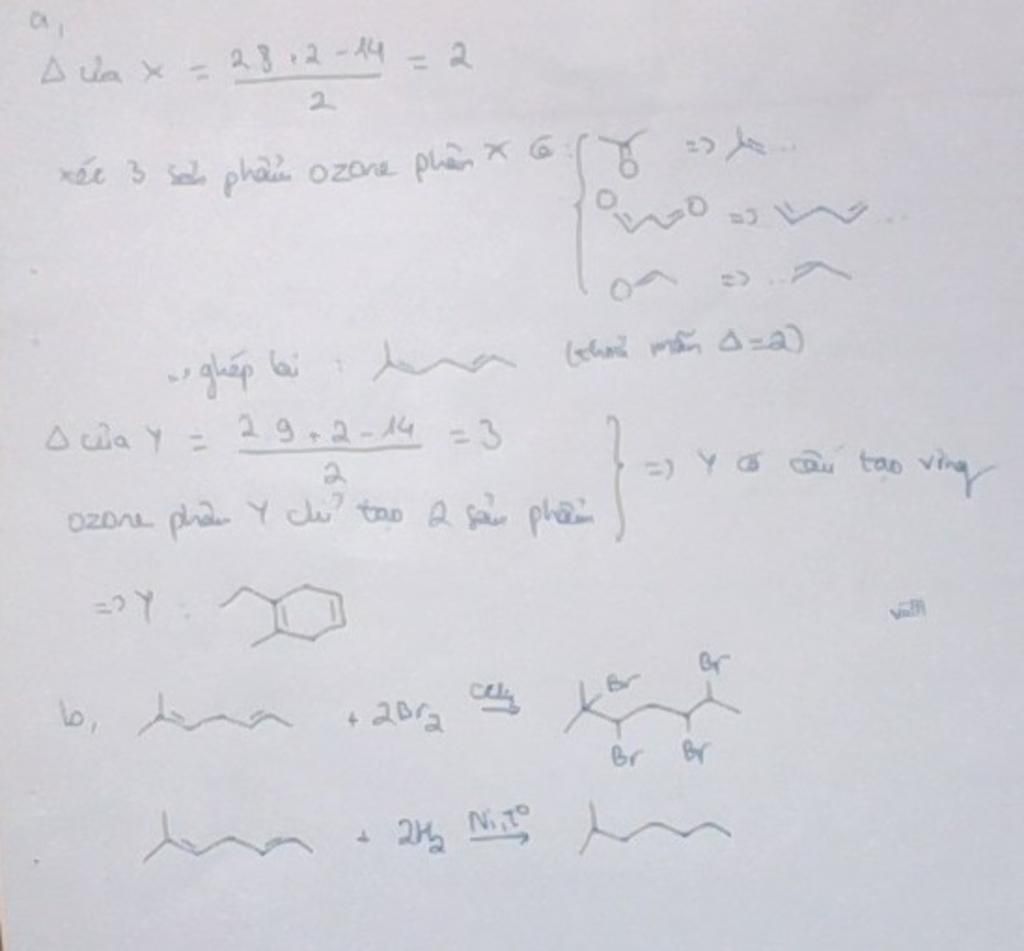 a,
Δ của X = \frac{2 8 . 2 - 14}{2} = 2
xét 3 sản phẩm ozone phân X có : { O => ...
O O => ...
O => ...
ghép lại : (thoả mãn Δ=2)
Δ của Y = \frac{2 9 + 2 - 14}{2} = 3
ozone phân Y chỉ tạo 2 sản phẩm } => Y có cấu tạo vòng
=> Y :
b, + 2Br2 CCl4 → Br Br Br Br
+ 2H2 Ni,t° →